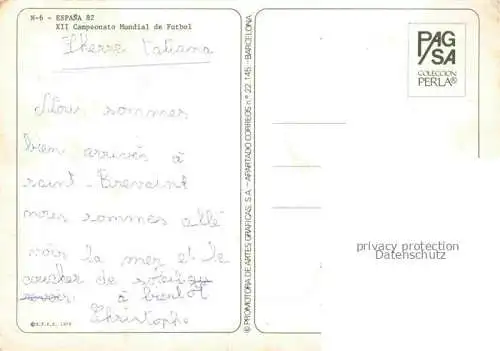 N-6 - ESPAÑA 82
XII Campeonato Mundial de Futbol
Cherre Tatiana
Nous sommes
bien arrivés à
saint-Brevaint
nous sommes allé
voir la mer et le
coucher de soleil
à bientôt
Christophe
© PROMOTORA DE ARTES GRAFICAS, S.A. - APARTADO CORREOS n.º 22.145 - BARCELONA
PAG
SA
COLECCION
PERLA®
privacy protection
Datenschutz